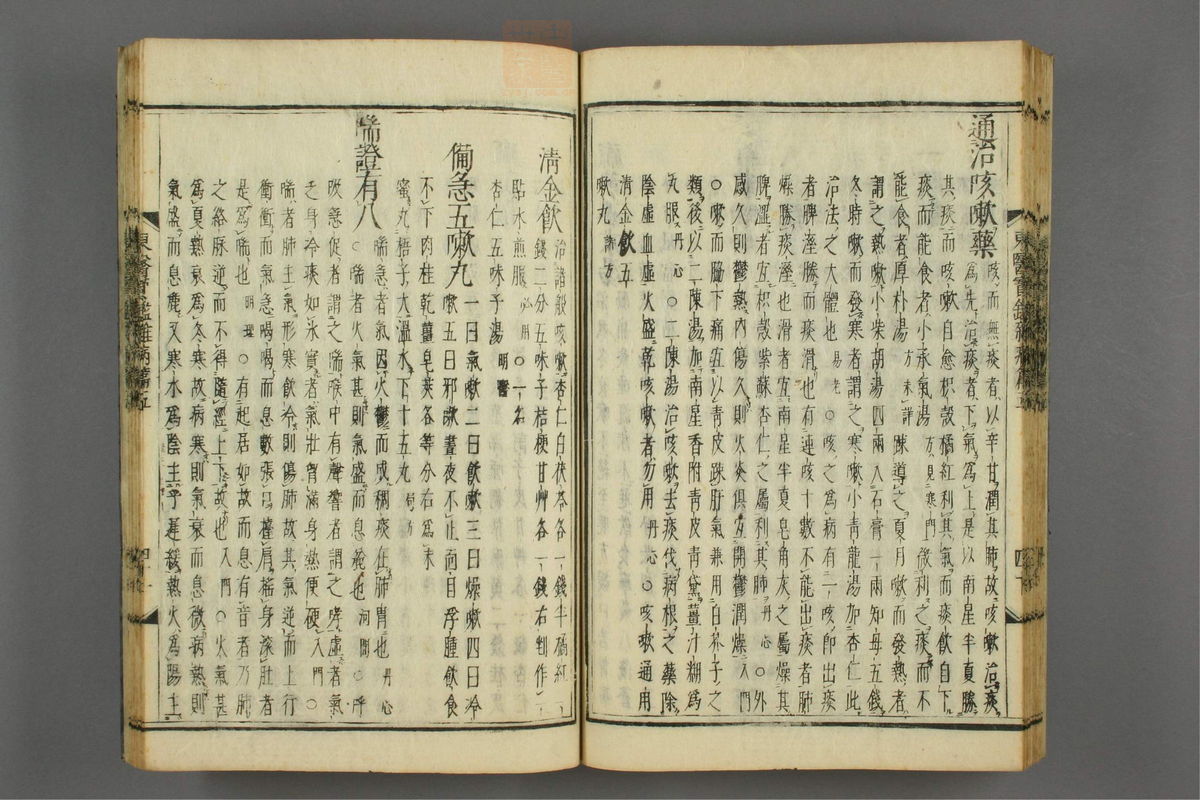 通治咳嗽藥 咳而無痰者以辛甘潤其肺故咳嗽治痰
爲先治痰者下氣爲上是以南星半夏勝
其痰而咳嗽自愈枳殼橘紅利其氣而痰飮自下
痰而能食者小承氣湯方見寒門微利之痰而不
能食者厚朴湯方未詳踈導之夏月嗽而發熱者
謂之熱嗽小柴胡湯四兩入石膏一兩知母五錢
冬時嗽而發寒者謂之寒嗽小靑龍湯加杏仁此
治法之大體也易老○咳之爲病有二一咳卽出痰
者脾溼勝而痰滑也有連咳十數不能出痰者肺
燥勝痰溼也滑者宜南星半夏皂角灰之屬燥其
脾澀者宜枳殼紫蘇杏仁之屬利其肺丹心○外
感久則鬱熱內傷久則火炎俱宜開鬱潤燥入門
○嗽而脇下痛宜以靑皮踈肝氣兼用白芥子之
類後以二陳湯加南星香附靑皮靑黛薑汁糊爲
丸服丹心○二陳湯治咳嗽去痰伐病根之藥除
陰虛血虛火盛乾咳嗽者勿用丹心○咳嗽通用
淸金飮五
嗽丸諸方
東醫寶鑑雜病篇五 四十
淸金飮 治諸般咳嗽杏仁白茯苓各一錢半橘紅一
錢二分五味子桔梗甘艸各一錢右剉作一
貼水煎服必用○一名
杏仁五味子湯明醫
備急五嗽丸 一曰氣嗽二曰飮嗽三曰燥嗽四曰冷
嗽五曰邪嗽晝夜不止面目浮腫飮食
不下肉桂乾薑皂莢各等分右爲末
蜜丸梧子大溫水下十五丸局方
喘證有八 喘急者氣因火鬱而成稠痰在肺胃也丹心
○喘者火氣甚則氣盛而息麄也河間○呼
吸急促者謂之喘喉中有聲響者謂之哮虛者氣
乏身冷痰如氷實者氣壯胷滿身熱便硬入門○
喘者肺主氣形寒飮冷則傷肺故其氣逆而上行
衝衝而氣急喝喝而息數張口擡肩搖身滾肚者
是爲喘也明理○有起居如故而息有音者乃肺
之絡脉逆而不得隨經上下故也入門○火氣甚
爲夏熱衰爲冬寒故病寒則氣衰而息微病熱則
氣盛而息麄又寒水爲陰主乎遲緩熱火爲陽主
東醫寶鑑雜病篇五 四十